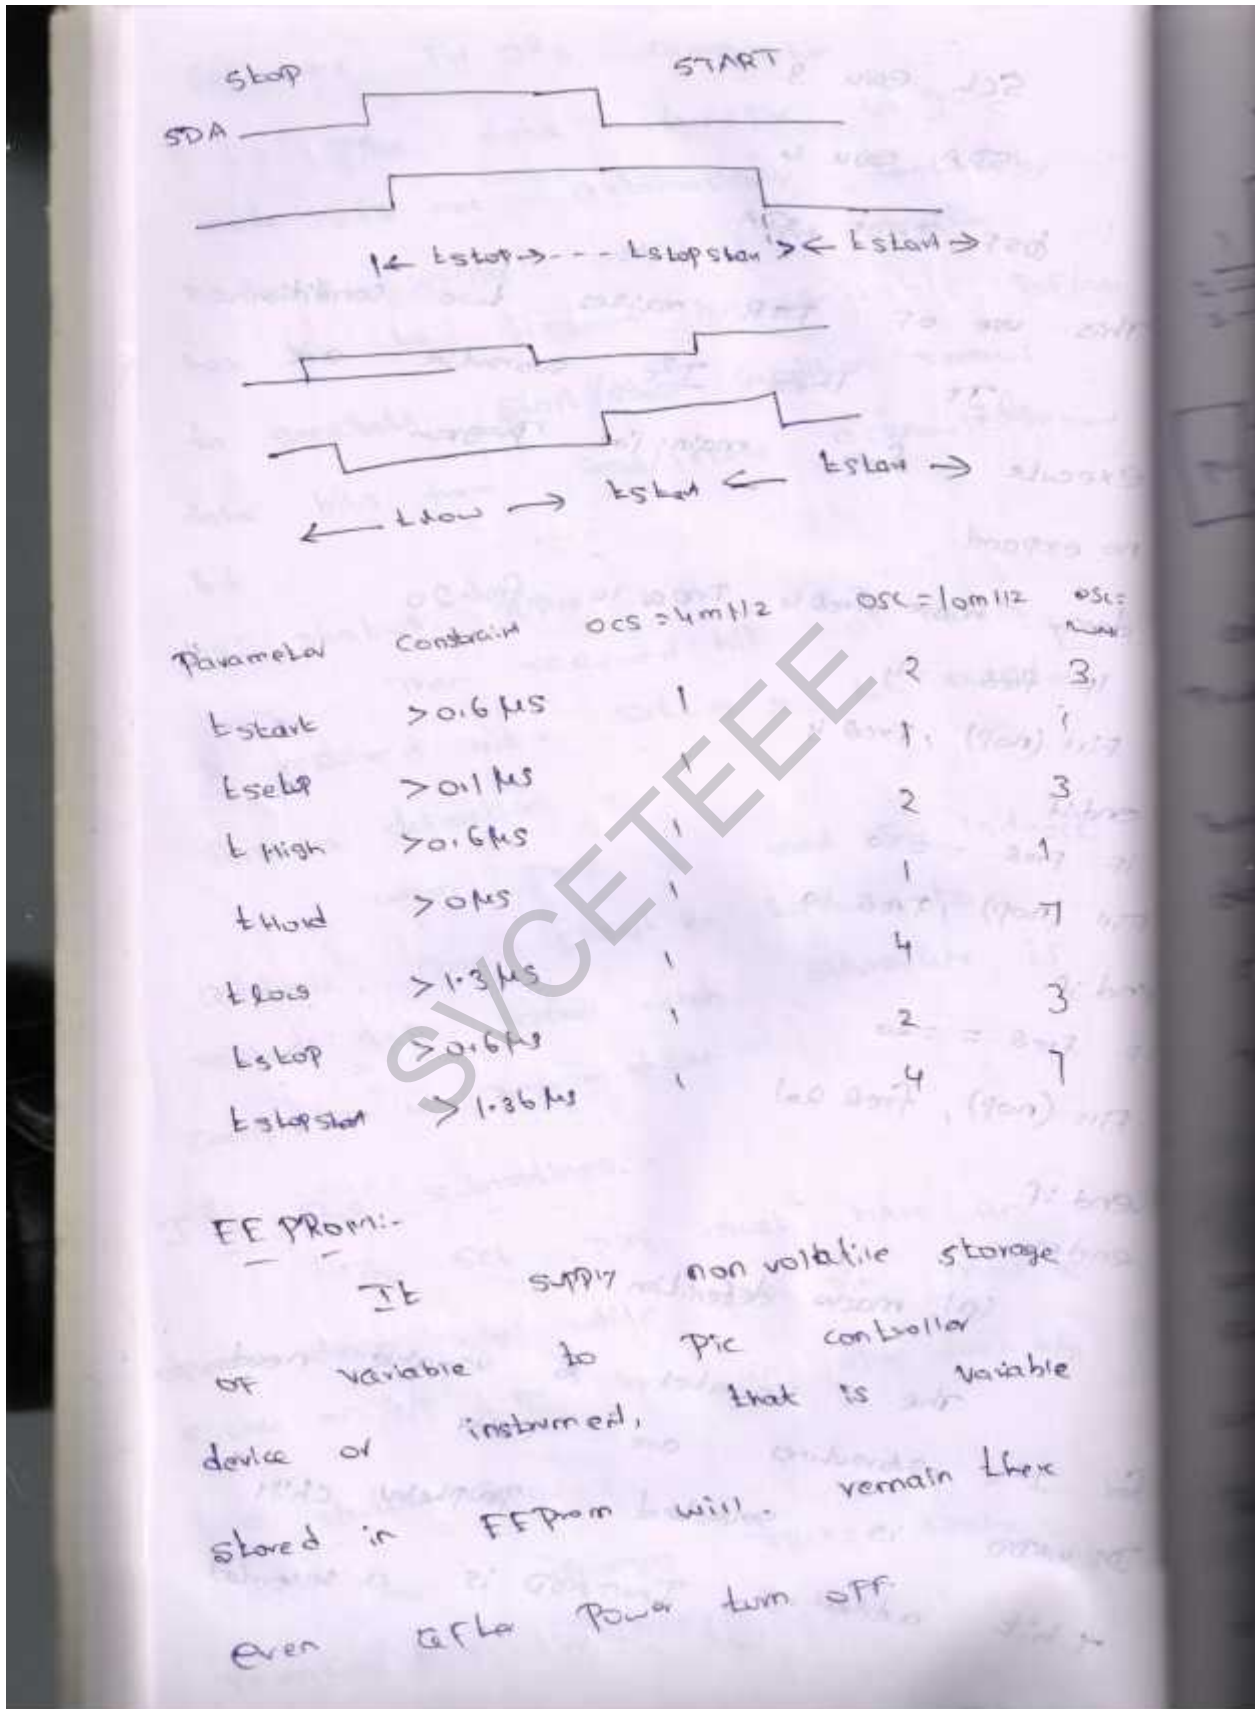 Stop START
SDA
tstop tstopstart tstart
tlow tstart tstart
Parameter Constraint OCS = 4mHz OSC = 10mHz OSC =
tstart >0.6 μs 1 2 3
tsetup >0.1 μs 1 1 1
t High >0.6 μs 1 2 3
t Hold >0 μs 1 1 1
t low >1.3 μs 1 4 7
tstop >0.6 μs 1 2 3
tstopstart >1.36 μs 1 4 7
EEPROM:-
It supply non volatile storage
of variable to Pic controller
device or instrument, that is variable
stored in EEProm will. remain there
even after Power turn off.
SVCETEEE